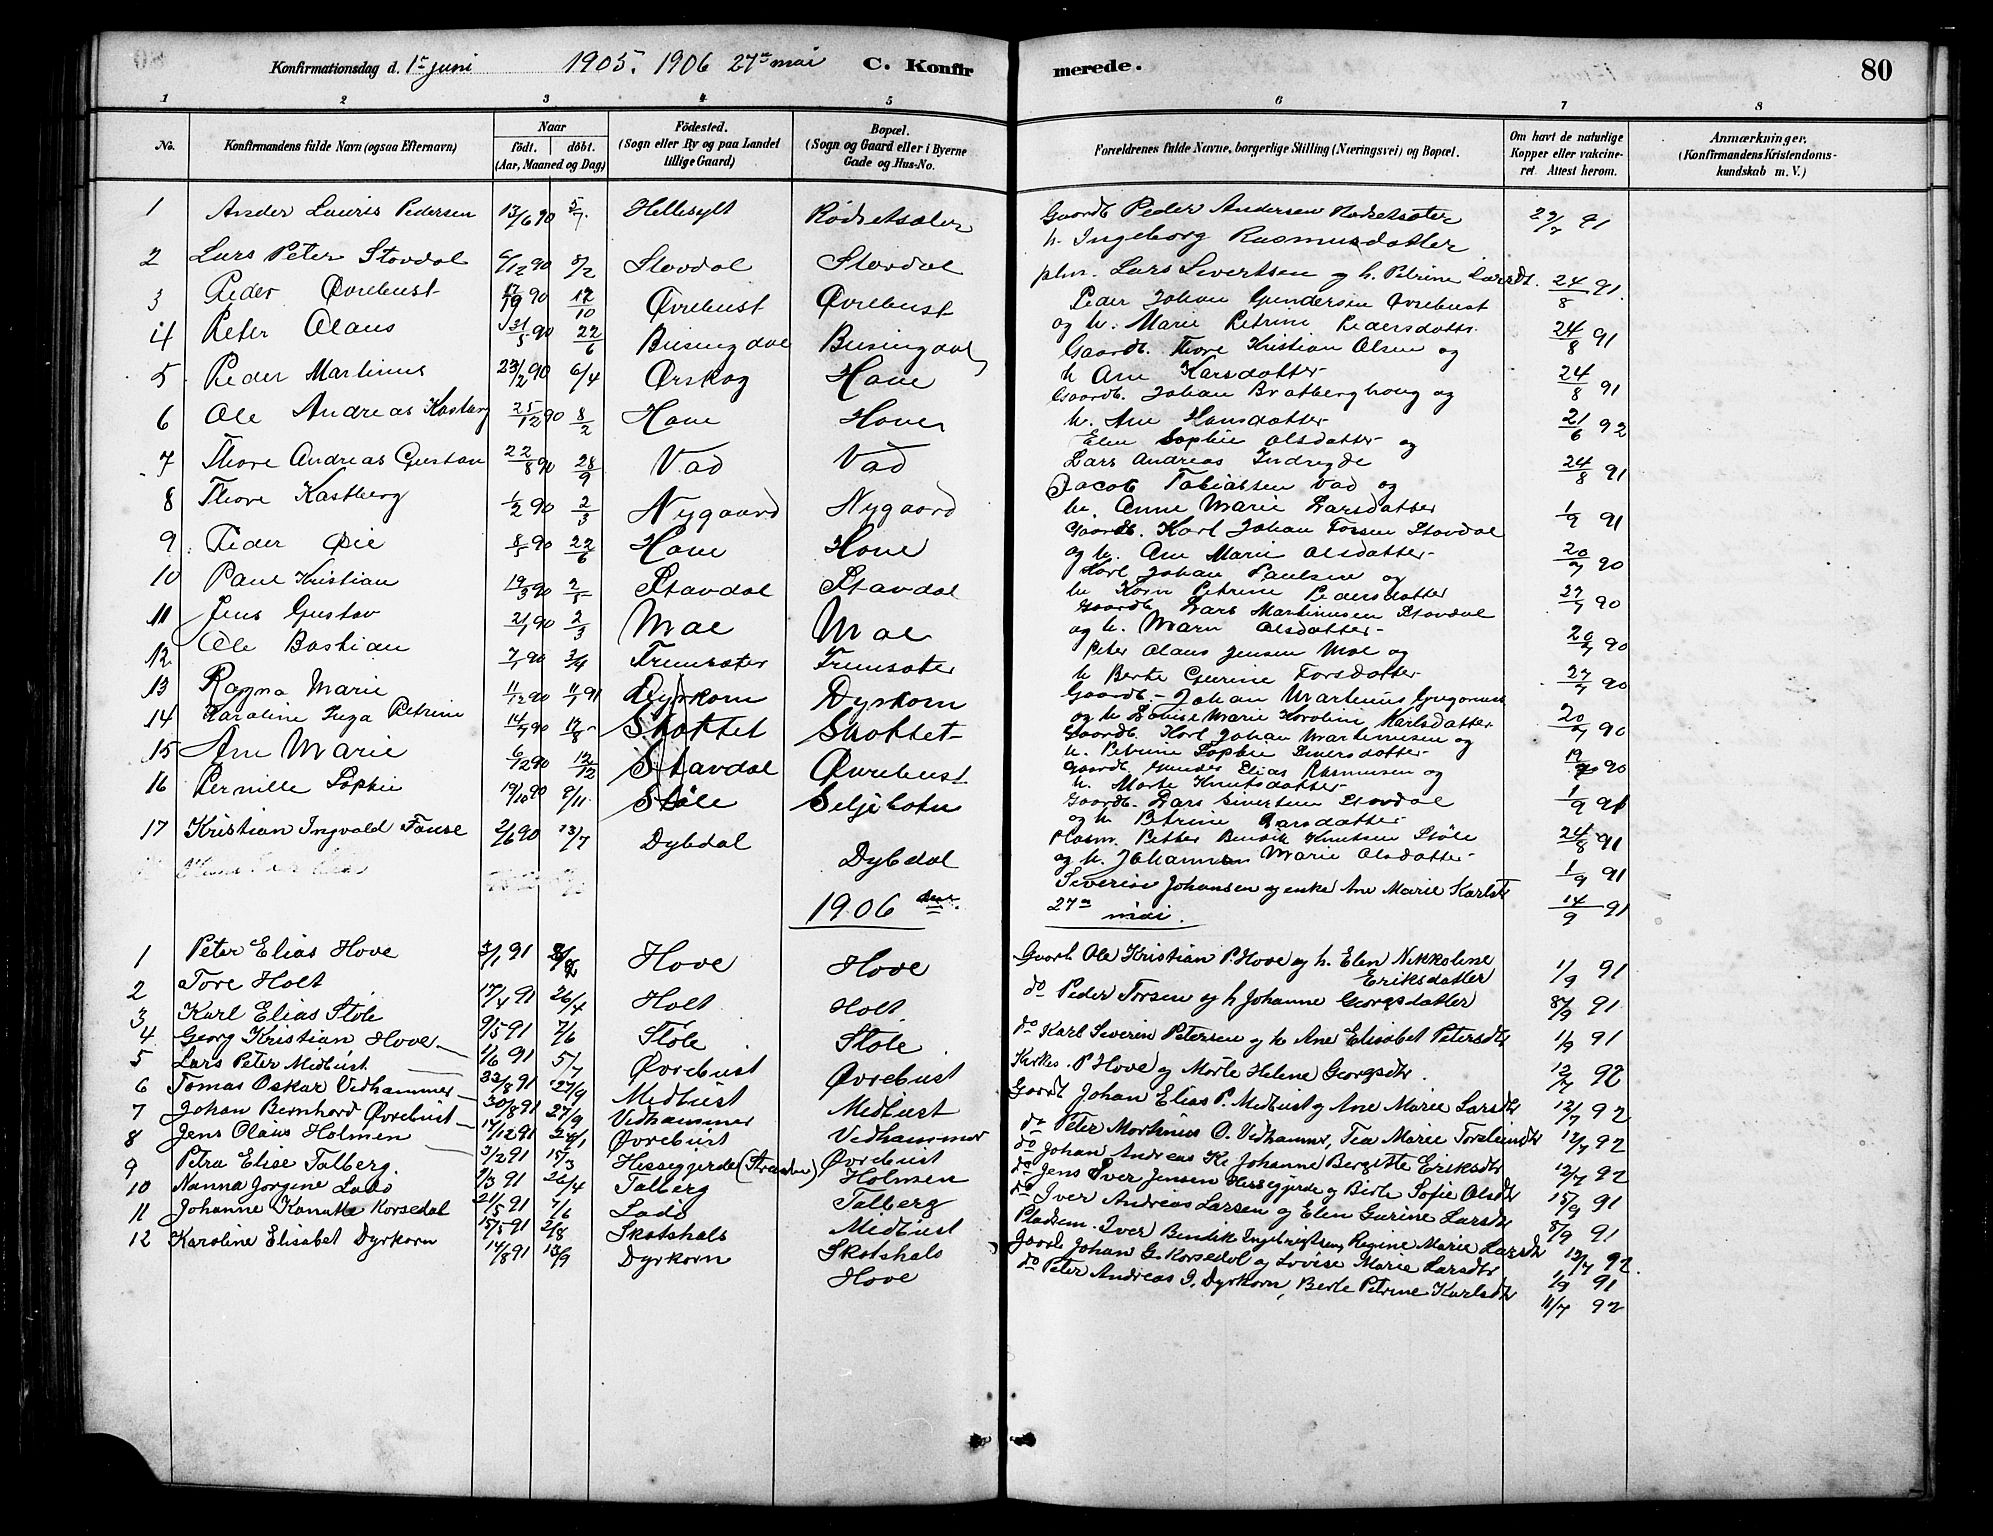 Konfirmationsdag d. 1ste juni 1905. 1906 27de mai C. Konfirmerede. 80
1 2 3 4 5 6 7 8
No. Konfirmandens fulde Navn (ogsaa Efternavn) Naar födt. döbt. (Aar, Maaned og Dag) Födested. (Sogn eller By og paa Landet tillige Gaard) Bopæl. (Sogn og Gaard eller i Byerne Gade og Hus-No. Forældrenes fulde Navne, borgerlige Stilling (Næringsvei) og Bopæl. Om havt de naturlige Kopper eller vakcineret. Attest herom. Anmærkninger. (Konfirmandens Kristendomskundskab m. V.)
1 Ander Lauris Pedersen 13/6 90 5/7 Hellesylt Rødsetsæter Gaardb Peder Andersen Rødsetsæter 29/7 91
h. Ingeborg Rasmusdatter
2 Lars Peter Stovdal 6/12 90 8/2 Stovdal Stovdal plm. Lars Sivertsen og h. Petrine Larsdt. 24/8 91
3 Peder Øvrebust 90 12/10 Øvrebust Øvrebust Peder Johan Gundersen Øvrebust
og h. Marie Petrine Pedersdatter 24/8 91
4 Peter Olaus 31/5 90 22/6 Busingdal Busingdal Gaardb. Thore Kristian Olsen og
h Ane Larsdatter 24/8 91
5 Peder Martinus 23/2 90 6/4 Ørskog Hove Gaardb. Johan Bratberghoug og
h. Ane Hansdatter 21/6 92
6 Ole Andreas Kastberg 25/12 90 8/2 Hove Hove Elen Sophie Olsdatter og
Lars Andreas Indregde 24/8 91
7 Thore Andreas Gustav 22/8 90 28/9 Vad Vad Jacob Tobiassen Vad og
h. Anne Marie Larsdatter 1/9 91
8 Thore Kastberg 1/2 90 2/3 Nygaard Nygaard Gaardb. Karl Johan Torsen Stovdal
og h. Ane Marie Olsdatter 20/7 90
9 Peder Øie 8/5 90 22/6 Hove Hove Karl Johan Paulsen og
h Karn Petrine Pedersdatter 27/7 90
10 Paul Kristian 19/3 90 2/5 Stavdal Stavdal Gaardb Lars Martinusen Stovdal
og h. Marn Olsdatter 20/7 90
11 Jens Gustav 21/1 90 2/3 Moe Moe Peter Olaus Jensen Moe og
h Berte Gurine Torsdatter 27/7 90
12 Ole Bastian 7/1 90 3/4 Fremsæter Fremsæter Gaardb. Johan Martinus Gregoriusen
og h Lovise Marie Karoline Karlsdatter 20/7 90
13 Ragna Marie 11/12 90 11/1 91 Dyrkorn Dyrkorn Gaardb. Karl Johan Martinusen og
h. Petrine Sophie Iversdatter 90
14 Karoline Inga Petrine 14/7 90 17/8 Skottet Skottet Gaardb Gunder Elias Rasmusen og
h. Marte Knutsdatter 1/9 91
15 Ane Marie 6/12 90 12/12 Stavdal Øvrebust Gaardb. Lars Sivertsen Stovdal
og h. Petrine Larsdatter 24/8 91
16 Pernille Sophie 19/10 90 9/11 Støle Seljebotn Plasm. Petter Bendik Knutsen Støle
og h. Johannen Marie Olsdatter 1/9 91
17 Kristian Ingvald Fause 2/6 90 13/7 Dybdal Dybdal Severin Johansen og enke Ane Marie Karlsdt 14/9 91
1906 den 27de mai.
1 Peter Elias Hove 3/1 91 Hove Hove Gaardb Ole Kristian P. Hove og h. Elen Nikkoline Eriksdatter 1/9 91
2 Tore Holt 17/4 91 26/4 Holt Holt do Peder Torsen og h Johanne Georgsdatter 8/9 91
3 Karl Elias Støle 9/5 91 7/6 Støle Støle do Karl Severin Petersen og h Ane Elisabet Petersdtr 1/9 91
4 Georg Kristian Hove 1/6 91 5/7 Øvrebust Øvrebust Kirkes. P Hove og Marte Helene Georgsdtr. 12/7 92
5 Lars Peter Midbust 91 27/9 Midbust Midbust Gaardb Johan Elias P. Midbust og Ane Marie Larsdtr 12/7 92
6 Tomas Oskar Vidhammer 30/8 91 27/9 Vidhammer Vidhammer do Peter Martinus O. Vidhammer, Tea Marie Torsteinsdtr 12/7 92
7 Johan Bernhard Øvrebust 14/12 91 24/1 Øvrebust Øvrebust do Johan Andreas K. Johanne Bergitte Eriksdtr 12/7 92
8 Jens Olaus Holmen 3/2 91 15/3 Hessegjerde (Stranden) Holmen do Jens Iver Jensen Hessegjerde og Birte Sofie Olsdtr 15/9 91
9 Petra Elise Talberg. 11/3 91 26/4 Talberg Talberg do Iver Andreas Larsen og Elen Gurine Larsdtr 8/9 91
10 Nanna Jorgine Lade 21/5 91 7/6 Lade Midbust Pladsm. Iver Bendik Ingebrigtsen, Regine Marie Larsdtr 12/7 92.
11 Johanne Kanutte Korsedal 15/5 91 2/8 Skotshals Skotshals Gaardb Johan G. Korsedal og Lovise Marie Larsdtr 1/9 91
12 Karoline Elisabet Dyrkorn 14/8 91 13/9 Dyrkorn Hove do Peter Andreas I. Dyrkorn, Berte Petrine Karlsdtr 11/7 92